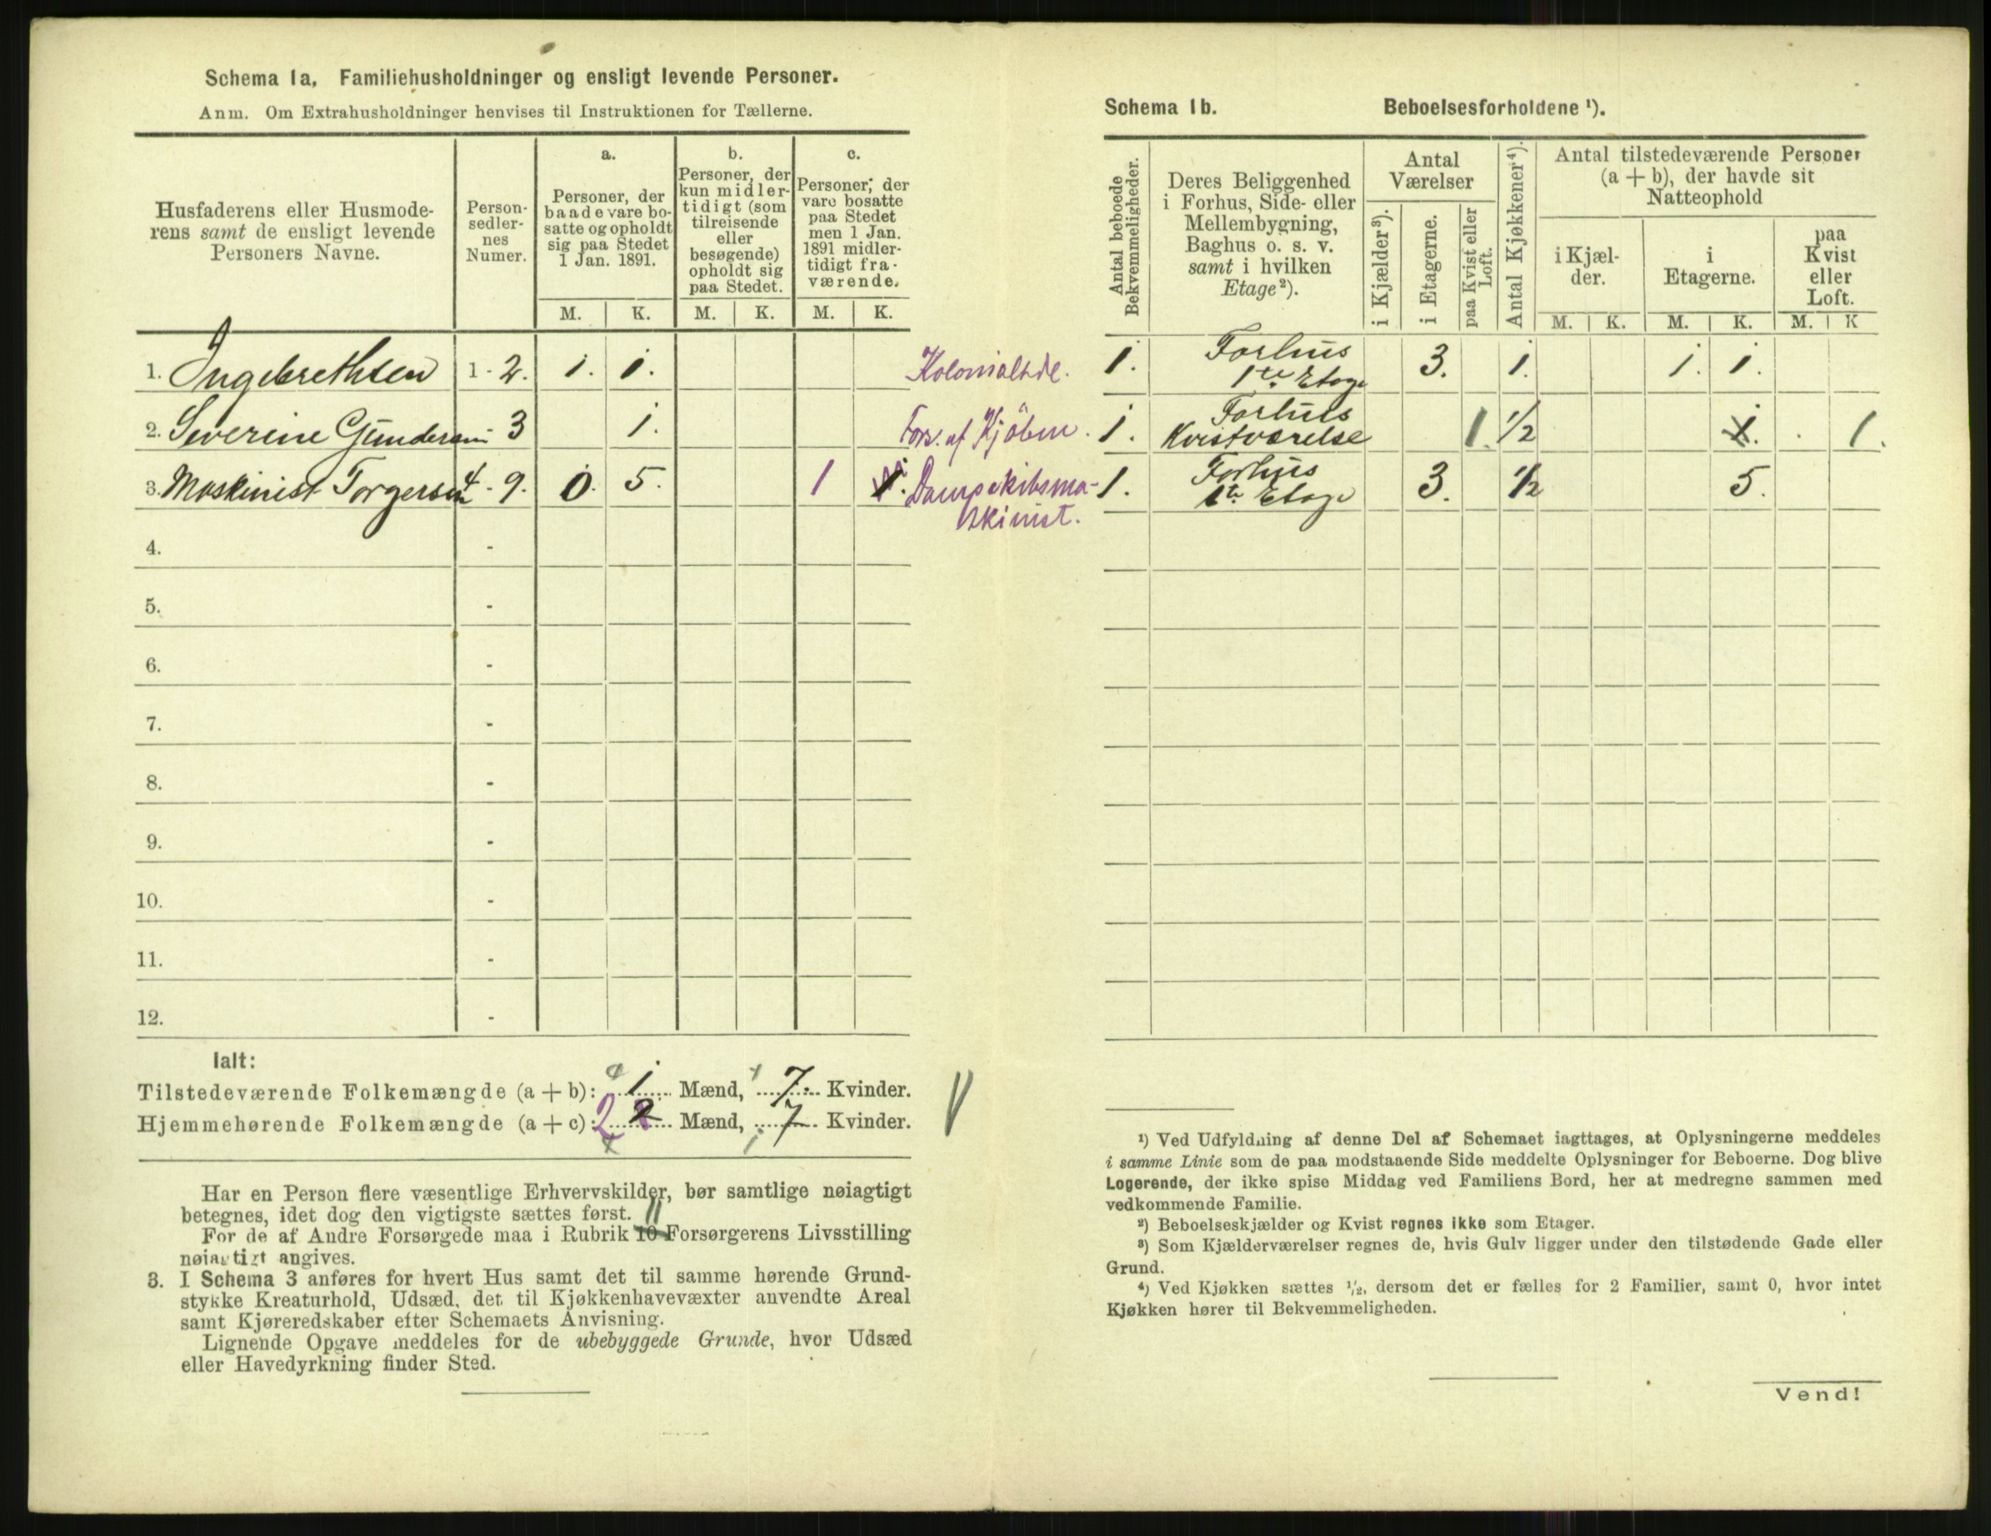 Schema 1a. Familiehusholdninger og ensligt levende Personer.
Anm. Om Extrahusholdninger henvises til Instruktionen for Tællerne.
Husfaderens eller Husmode-
rens samt de ensligt levende
Personers Navne.
Person-
sedler-
nes
Numer.
a.
Personer, der
baade vare bo-
satte og opholdt
sig paa Stedet
1 Jan. 1891.
M. K.
b.
Personer, der
kun midler-
tidigt (som
tilreisende
eller
besøgende)
opholdt sig
paa Stedet.
M. K.
c.
Personer, der
vare bosatte
paa Stedet
men 1 Jan.
1891 midler-
tidigt fra-
værende.
M. K.
1. Ingebrethsen 1 - 2. 1. 1. Kolonialhdl.
2. Severine Gundersen 3 1. Fors. af Kjöbm.
3. Maskinist Torgersen 4 - 9. 0. 5. 1 1. Dampskibsma-
skinist.
4. -
5. -
6. -
7. -
8. -
9. -
10. -
11. -
12. -
Ialt:
Tilstedeværende Folkemængde (a + b): 1 Mænd, 7. Kvinder.
Hjemmehørende Folkemængde (a + c): 2 2 Mænd, 7 Kvinder.
Har en Person flere væsentlige Erhvervskilder, bør samtlige nøiagtigt
betegnes, idet dog den vigtigste sættes først. 11
For de af Andre Forsørgede maa i Rubrik 10 Forsørgerens Livsstilling
nøiagtigt angives.
3. I Schema 3 anføres for hvert Hus samt det til samme hørende Grund-
stykke Kreaturhold, Udsæd, det til Kjøkkenhavevæxter anvendte Areal
samt Kjøreredskaber efter Schemaets Anvisning.
Lignende Opgave meddeles for de ubebyggede Grunde, hvor Udsæd
eller Havedyrkning finder Sted.
Schema 1b. Beboelsesforholdene ¹).
Antal beboede
Bekvemmeligheder.
Deres Beliggenhed
i Forhus, Side- eller
Mellembygning,
Baghus o. s. v.
samt i hvilken
Etage²).
Antal
Værelser
i Kjælder³).
i Etagerne.
paa Kvist eller
Loft.
Antal Kjøkkener⁴).
Antal tilstedeværende Personer
(a + b), der havde sit
Natteophold
i Kjæl-
der.
M. K.
i
Etagerne.
M. K.
paa
Kvist
eller
Loft.
M. K
1. Forhus
1te Etage 3. 1. 1. 1.
1. Forhus
Kvistværelse 1 1/2 1. 1.
1. Forhus
1te Etage 3. 1/2 5.
¹) Ved Udfyldning af denne Del af Schemaet iagttages, at Oplysningerne meddeles
i samme Linie som de paa modstaaende Side meddelte Oplysninger for Beboerne. Dog blive
Logerende, der ikke spise Middag ved Familiens Bord, her at medregne sammen med
vedkommende Familie.
²) Beboelseskjælder og Kvist regnes ikke som Etager.
³) Som Kjælderværelser regnes de, hvis Gulv ligger under den tilstødende Gade eller
Grund.
⁴) Ved Kjøkken sættes ½, dersom det er fælles for 2 Familier, samt 0, hvor intet
Kjøkken hører til Bekvemmeligheden.
Vend!